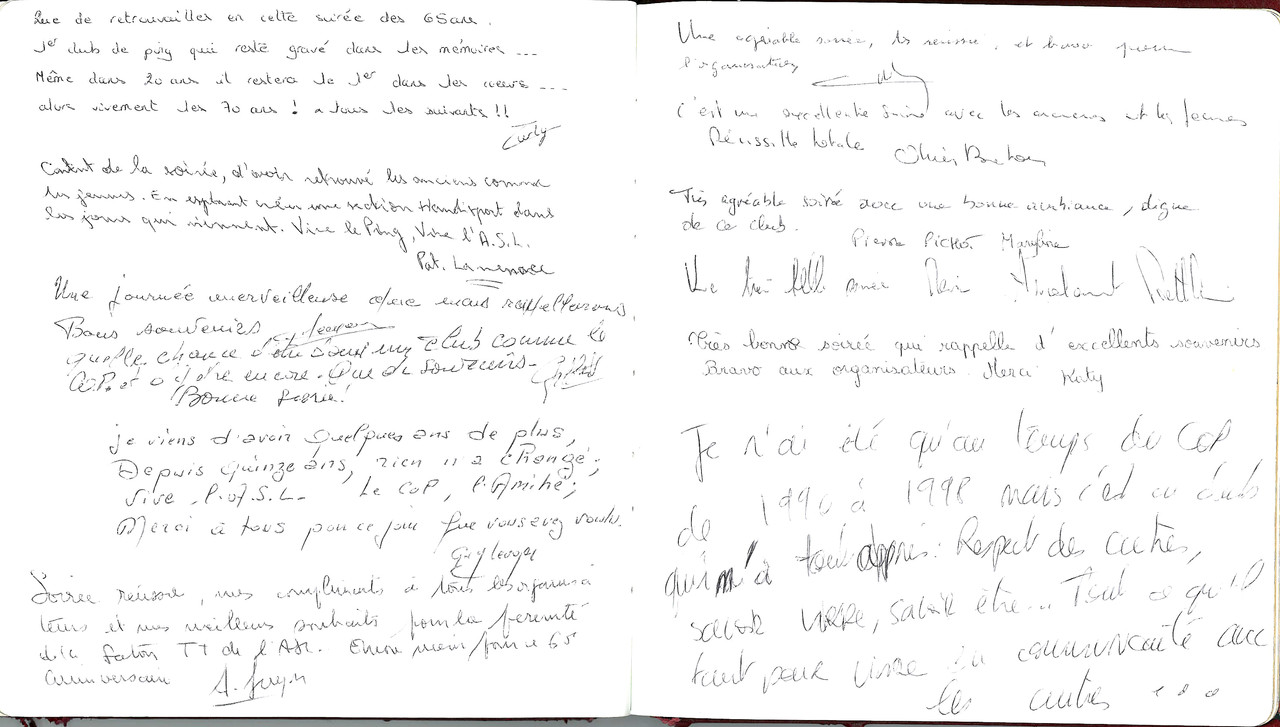 Que de retrouvailles en cette soirée des 65 ans.
1er club de ping qui reste gravé dans les mémoires ...
Même dans 20 ans il restera le 1er dans les coeurs ...
alors vivement les 70 ans ! à tous les suivants !!
Curly
Content de la soirée, d'avoir retrouvé les anciens comme
les jeunes. En espérant créer une section Handisport dans
les jours qui viennent. Vive le Ping, Vive l'A.S.L.
Pat. Lamenace
Une journée merveilleuse que nous rappellerons,
Bons souvenirs,
quelle chance d'être dans un club comme le
COP et d'être encore. Que de souvenirs.
Bonne soirée!
je viens d'avoir quelques ans de plus,
Depuis quinze ans, rien n'a changé;
Vive l'A.S.L. Le COP, l'Amitié;
Merci à tous pour ce jour que vous avez voulu.
Soirée réussie, mes compliments à tous les organisa
teurs et mes meilleurs souhaits pour la perennité
de la section TT de l'ASL. Encore merci pour ce 65
anniversaire
Une agréable soirée, très réussie, et bravo pour
l'organisation
C'est une excellente soirée avec les anciens et les jeunes
Réussite totale
Très agréable soirée avec une bonne ambiance, digne
de ce club.
Pierre Pichot Maryline
Une très belle soirée
Très bonne soirée qui rappelle d'excellents souvenirs
Bravo aux organisateurs. Merci Katy
Je n'ai été qu'au temps du COP
de 1990 à 1998 mais c'est un club
qui m'a tout appris: Respect des autres,
savoir vivre, savoir être... Tout ce qu'il
faut pour vivre en communauté avec
les autres ...